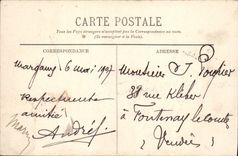 CARTE POSTALE
Tous les Pays étrangers n'acceptent pas la Correspondance au recto.
(Se renseigner à la Poste).
CORRESPONDANCE
ADRESSE
6 mai 1907
Respectueuse
amitié
André
Monsieur J.
28 rue Kléber
à Fontenay le Comte
(Vendée)